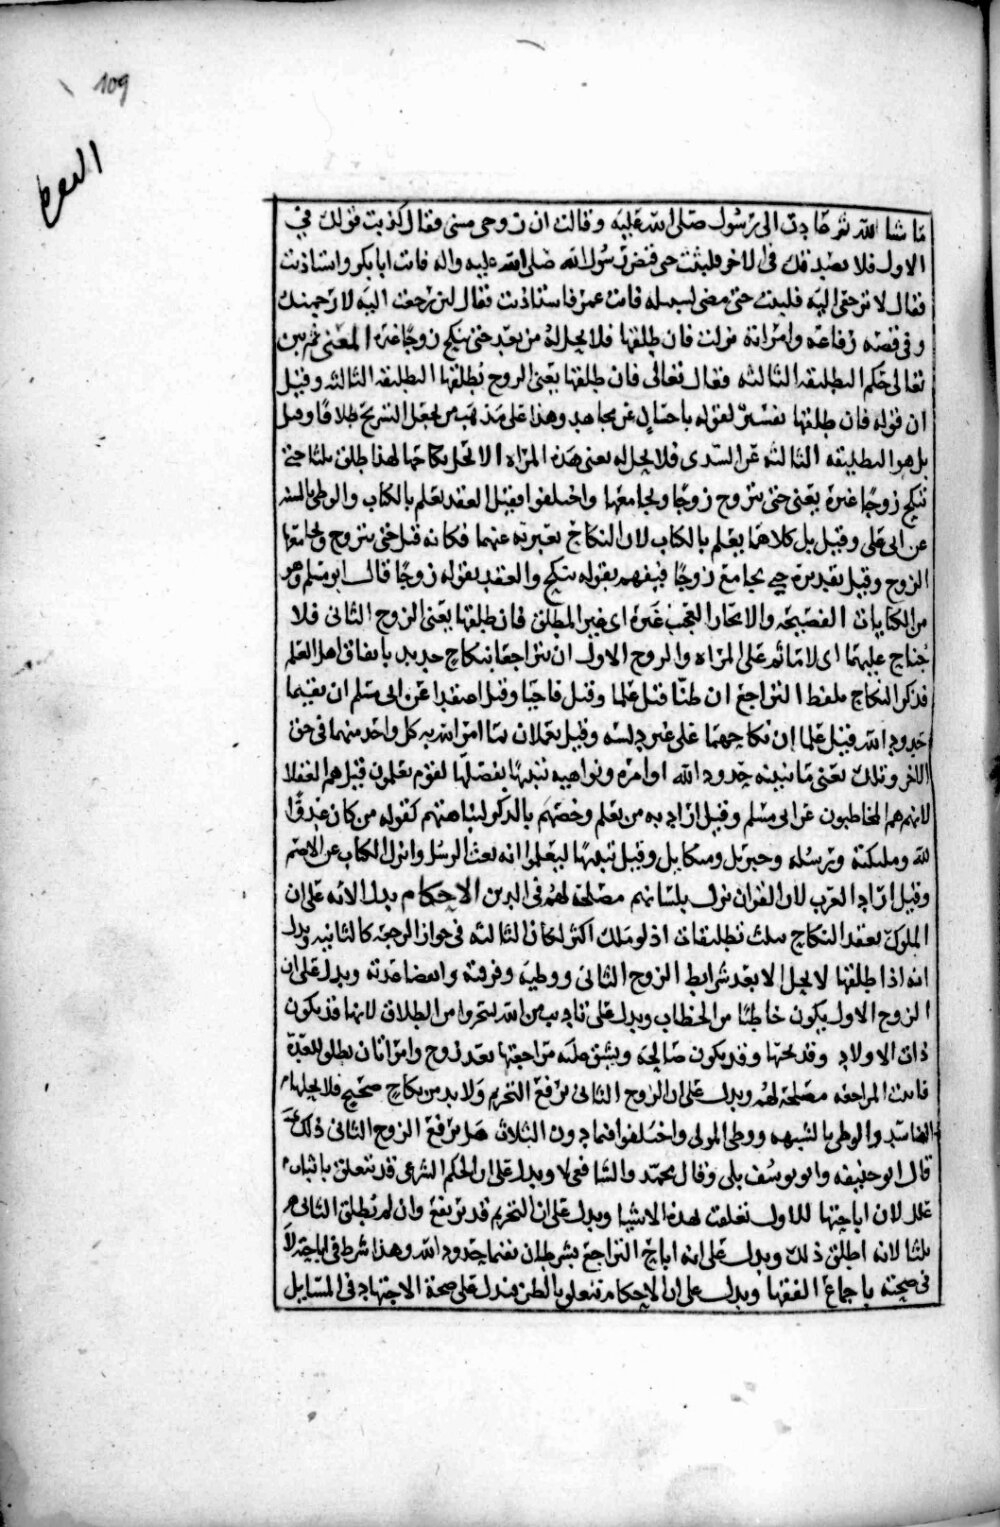 109
ما شا الله ثم عادت الى رسول صلى الله عليه وقالت ان زوجى مسنى فقال كذبت قولك في
الاول فلا نصدقك فى الاخر فلبثت حتى قبض رسول الله صلى الله عليه واله فاتت ابا بكر واستاذنت
فقال لا ترجعى اليه فلبثت حتى مضى لسبيله فاتت عمر فاستاذنت فقال لىن رجعت اليه لارجمنك
وفى قصه رفاعه وامراته نزلت فان طلقها فلا يحل له من بعد حتى تنكح زوجا غيره المعنى ثم بين
تعالى حكم التطليقه الثالثه فقال تعالى فان طلقها يعنى الزوج تطلقها التطليقه الثالثه وقيل
ان قوله فان طلقها تفسير لقوله باحسان عن مجاهد وهذا على مذهب من يجعل التسريح طلاقا وقيل
بل هو التطليقه الثالثه عن السدى فلا يحل له يعنى هذه المراه الا تحل نكاحها لهذا طلق ثلثا حتى
تنكح زوجا غيره يعنى حتى تتزوج زوجا ويجامعها واختلفوا فقيل العقد يعلم بالكتاب والوطى بالسنه
عن ابى على وقيل بل كلاهما يعلم بالكتاب لان النكاح يعبر به عنهما فكانه قيل حتى تتزوج ويجامعها
الزوج وقيل تقديره حتى يجامع زوجا فيفهم بقوله تنكح والعقد بقوله زوجا قال ابو مسلم وهو
من الكنايات الفصيحه والايجاز العجيب غيره اى غير المطلق فان طلقها يعنى الزوج الثانى فلا
جناح عليهما اى لا ماثم على المراه والزوج الاول ان يتراجعا بنكاح جديد باتفاق اهل العلم
فذكر النكاح بلفظ التراجع ان ظنا قيل علما وقيل رجيا وقيل اعتقدا عن ابى مسلم ان يقيما
حدود الله قيل علما ان نكاحهما على غير دلسه وقيل يعملان بما امر الله به كل واحد منهما فى حق
الاخر وتلك يعنى ما بينه حدود الله اوامره ونواهيه نبينها يفصلها لقوم يعلمون قيل هم العقلا
لانهم هم المخاطبون عن ابى مسلم وقيل اراد به من يعلم وخصهم بالذكر لنباهتهم كقوله من كان عدوا
لله وملىكته ورسله وجبريل وميكايل وقيل نبينها ليعلموا انه بعث الرسل وانزل الكتاب عن الاصم
وقيل اراد العرب لان القران نزل بلسانهم مصلحة لهم فى الدين الاحكام يدل الايه على ان
المملوك بعقد النكاح ثلث تطليقات اذ لو ملك اكثر لكان الثالثه فى جواز الرجعه كالثانيه ويدل
انه اذا طلقها لا يحل الا بعد شرايط الزوج الثانى ووطيه وفرقته وانقضا عدته ويدل على ان
الزوج الاول يكون خاطبا من الخطاب ويدل على تاديب من الله ليتحرزوا من الطلاق لانها قد يكون
ذات الاولاد وقد يحبها وقد يكون صالحه ويشق عليه مراجعتها بعد زوج وامراتان يطلق للعدة
فاىت المراجعه مصلحة لهم ويدل على ان الزوج الثانى يرفع التحريم ولا بد من نكاح صحيح فلا يحلها
الفاسد والوطى بالشبهه ووطى المولى واختلفوا فيما دون الثلاث هل يرفع الزوج الثانى ذلك
قال ابو حنيفه وابو يوسف بلى وقال محمد والشافعى لا ويدل على ان الحكم الشرعى قد يتعلق باثبات
علل لان اباحتها للاول تعلقت لهذه الاشيا ويدل على ان التحريم قد يرتفع وان لم يطلق الثانى
ثلثا لانه اطلق ذلك ويدل على انه اباح التراجع بشرط ان يقيما حدود الله وهذا شرط فى اباحته لا
فى صحته باجماع الفقها ويدل على ان الاحكام تتعلق بالظن فيدل على صحة الاجتهاد فى المسايل